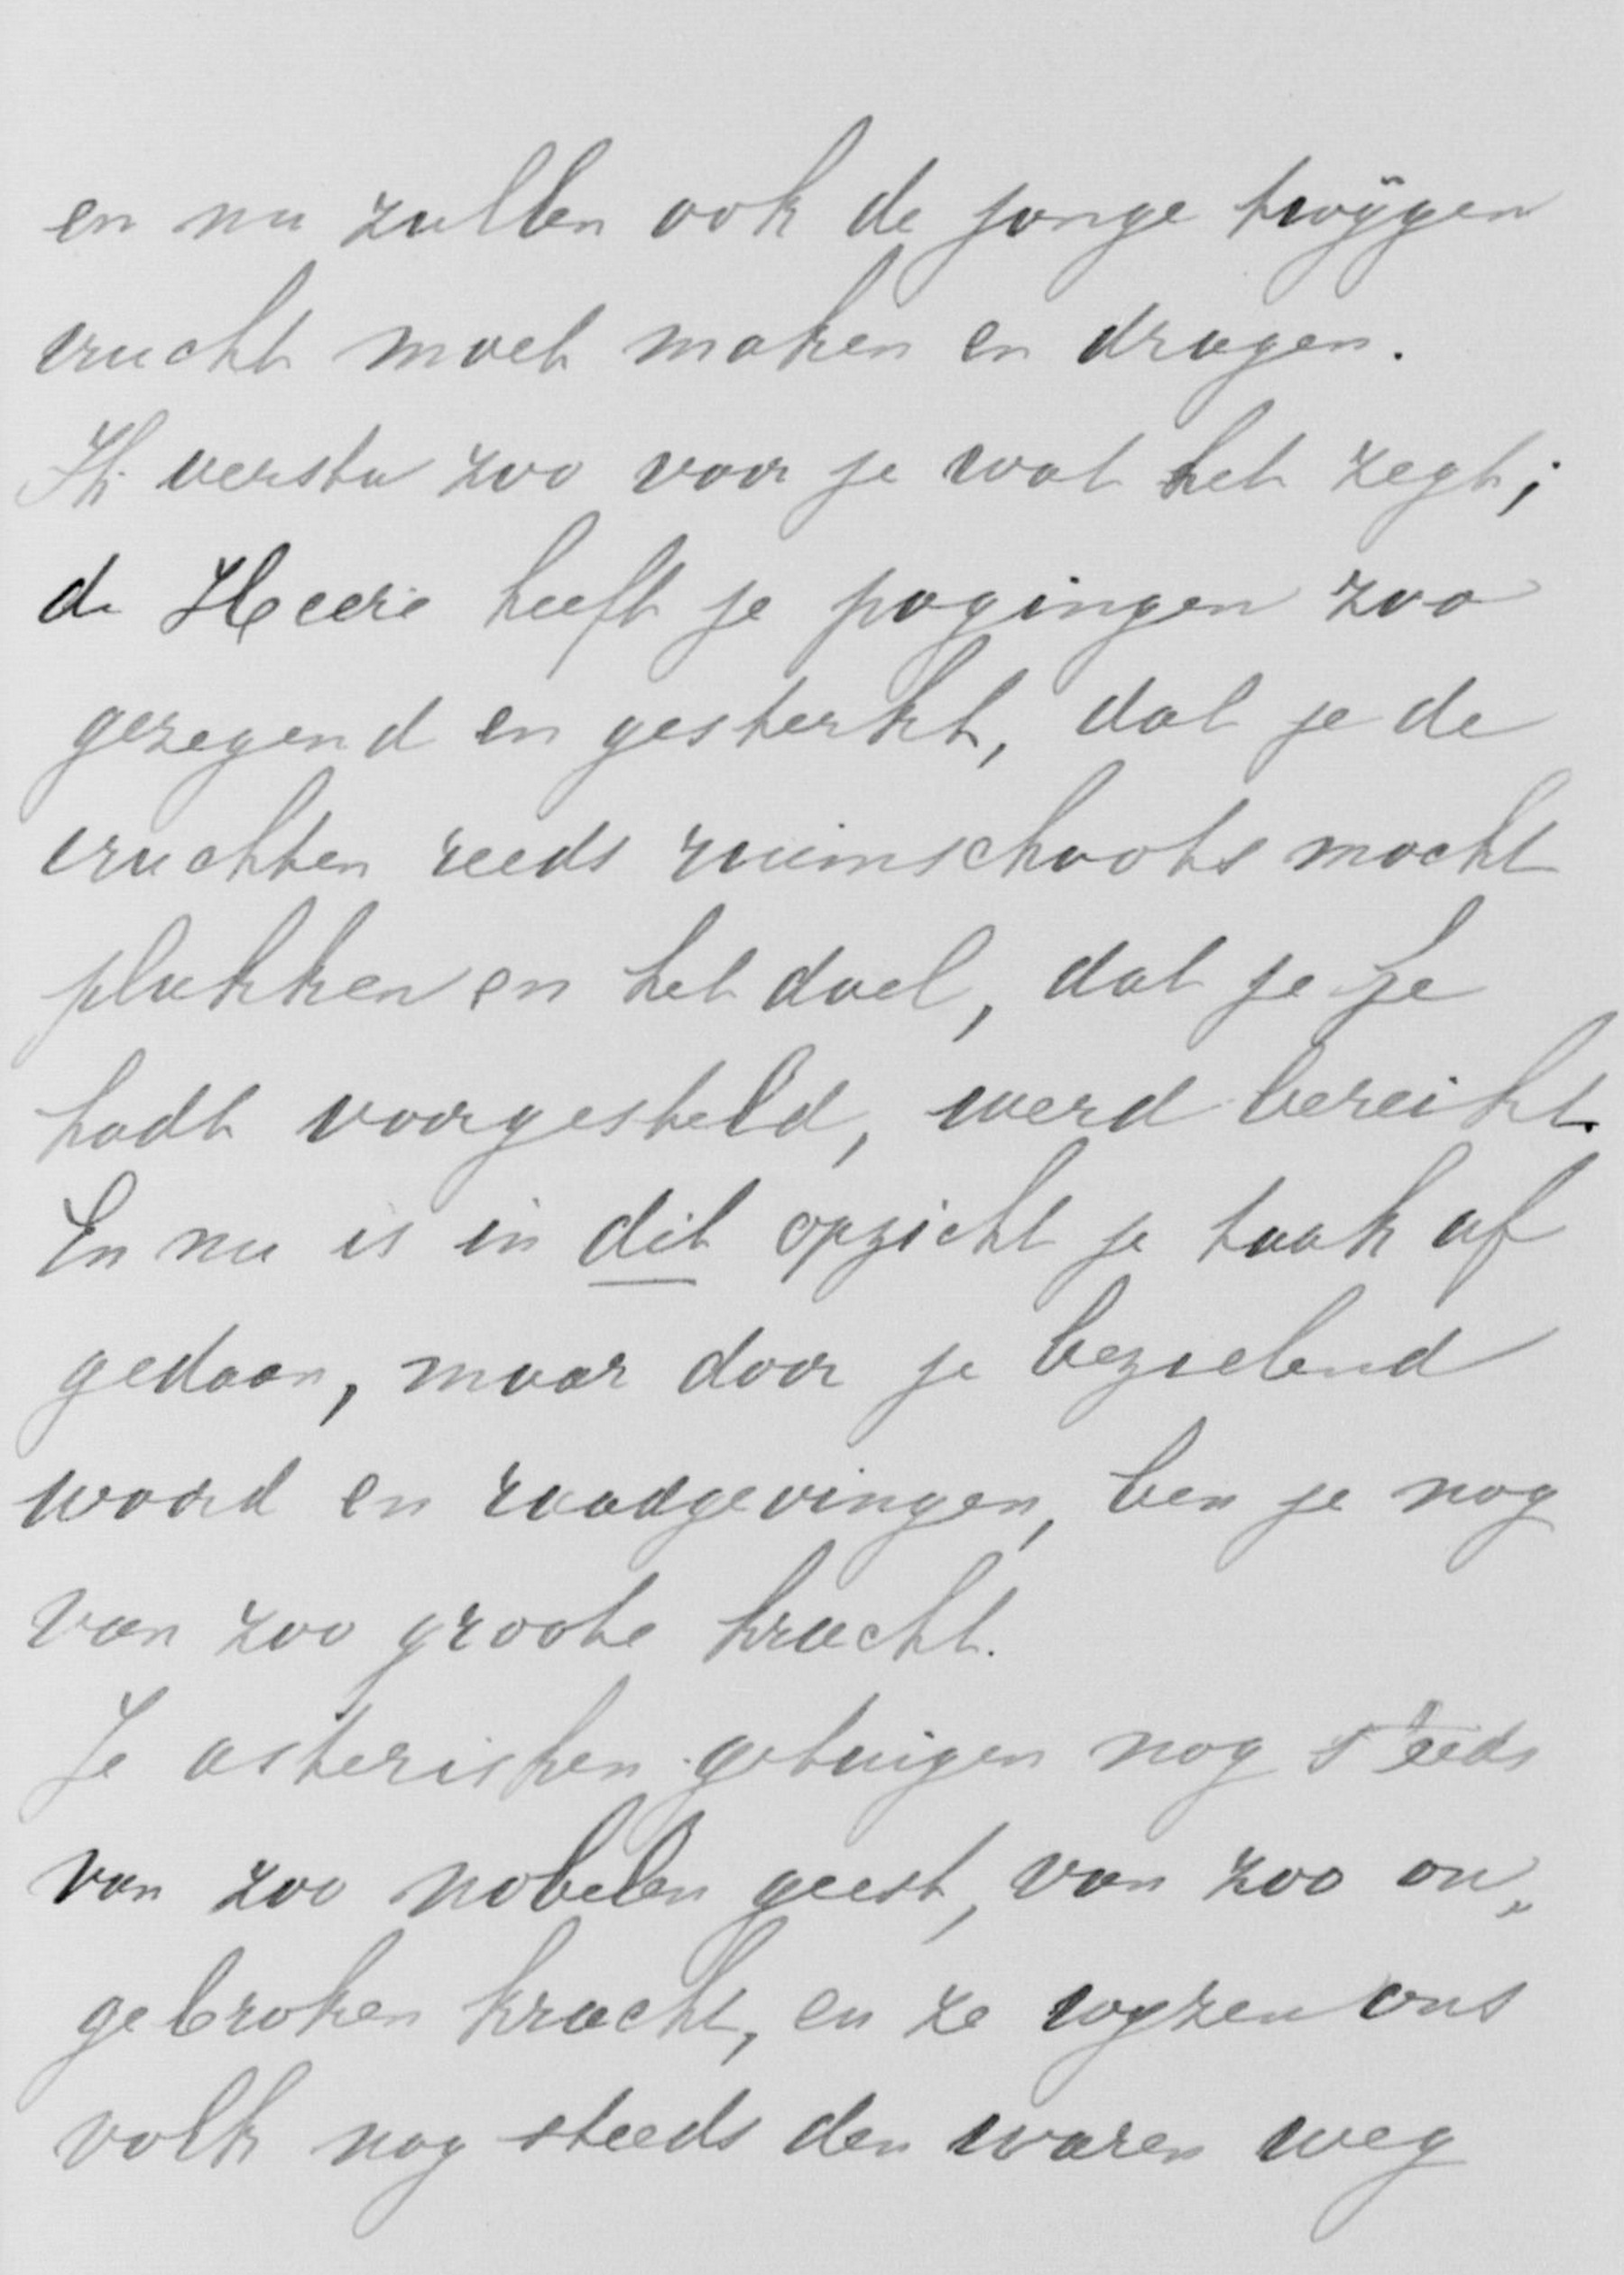 en nu zullen ook de jonge twijgen
vrucht moet maken en dragen.
Ik versta zoo voor je wat het zegt;
de Heere heeft je pogingen zoo
gezegend en gesterkt, dat je de
vruchten reeds ruimschoots mocht
plukken en het doel, dat je je
hadt voorgesteld, werd bereikt.
En nu is in dit opzicht je taak af
gedaan, maar door je bezielend
woord en raadgevingen, ben je nog
van zoo groote kracht.
Je asterisken getuigen nog steeds
van zoo nobelen geest, van zoo on„
gebroken kracht, en ze wyzen ons
volk nog steeds den waren weg